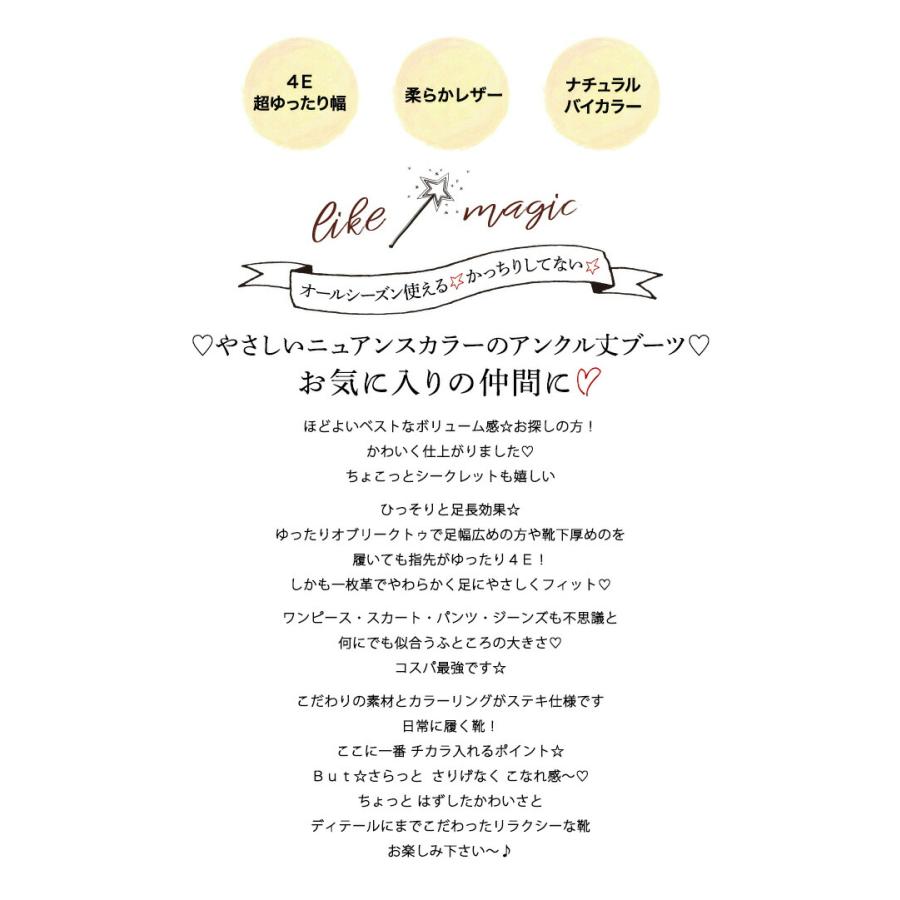 ４Ｅ
超ゆったり幅
柔らかレザー
ナチュラル
バイカラー
like magic
オールシーズン使える☆かっちりしてない☆
♡やさしいニュアンスカラーのアンクル丈ブーツ♡
お気に入りの仲間に♡
ほどよいベストなボリューム感☆お探しの方！
かわいく仕上がりました♡
ちょこっとシークレットも嬉しい
ひっそりと足長効果☆
ゆったりオブリークトゥで足幅広めの方や靴下厚めのを
履いても指先がゆったり４Ｅ！
しかも一枚革でやわらかく足にやさしくフィット♡
ワンピース・スカート・パンツ・ジーンズも不思議と
何にでも似合うふところの大きさ♡
コスパ最強です☆
こだわりの素材とカラーリングがステキ仕様です
日常に履く靴！
ここに一番 チカラ入れるポイント☆
Ｂｕｔ☆さらっと さりげなく こなれ感～♡
ちょっと はずしたかわいさと
ディテールにまでこだわったリラクシーな靴
お楽しみ下さい～♪